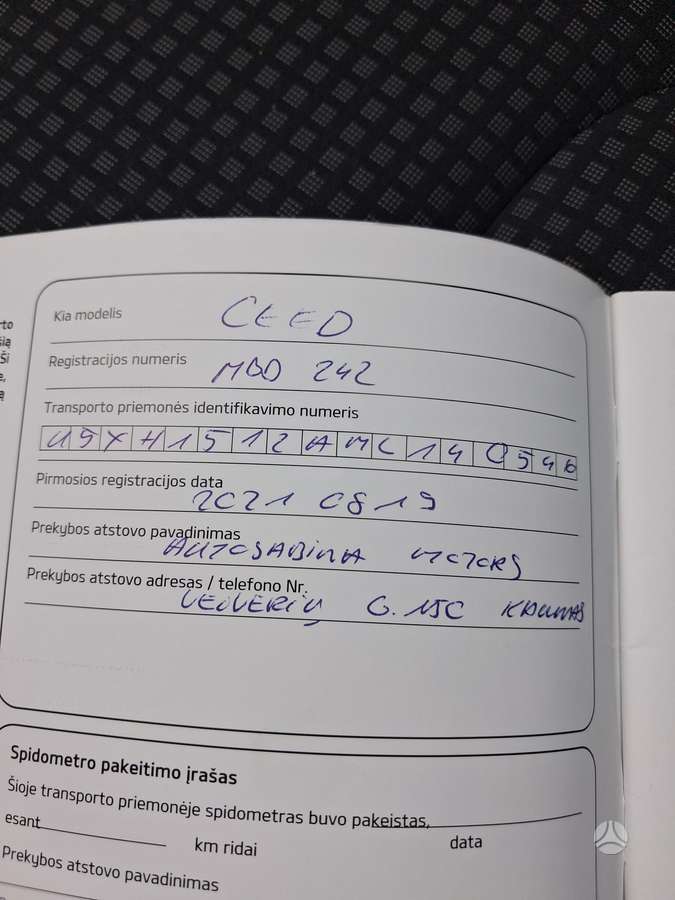 rto
sią
Ši
e,
ą
Kia modelis CEED
Registracijos numeris MBD 242
Transporto priemonės identifikavimo numeris
U5YH1512AML140546
Pirmosios registracijos data
2021 08 19
Prekybos atstovo pavadinimas
AUTOSABINA MOTORS
Prekybos atstovo adresas / telefono Nr.
VEIVERIŲ G. 150 KAUNAS
Spidometro pakeitimo įrašas
Šioje transporto priemonėje spidometras buvo pakeistas,
esant km ridai data
Prekybos atstovo pavadinimas